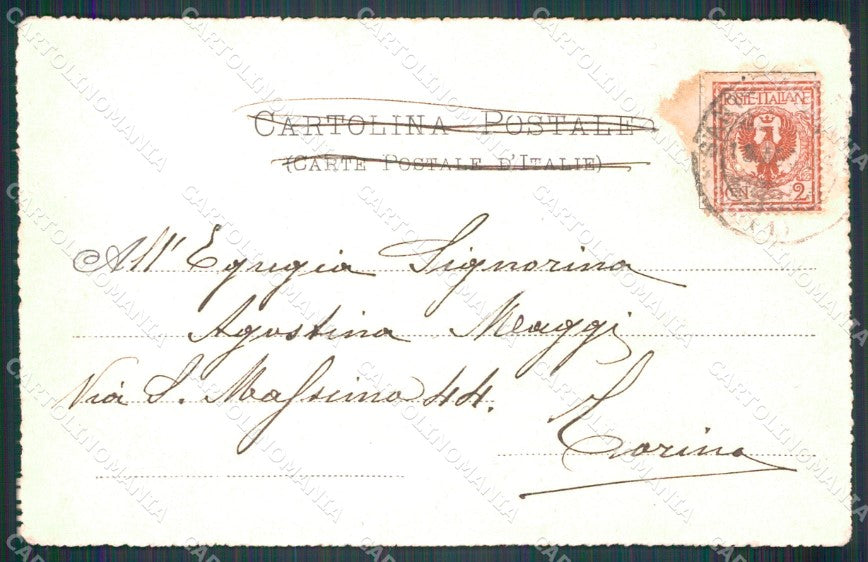 CARTOLINA POSTALE
(CARTE POSTALE D'ITALIE)
POSTE·ITALIANE
2
All' Egregia Signorina
Agostina Maggi
Via S. Massimo 44.
Torino
CARTOLINOMANIA